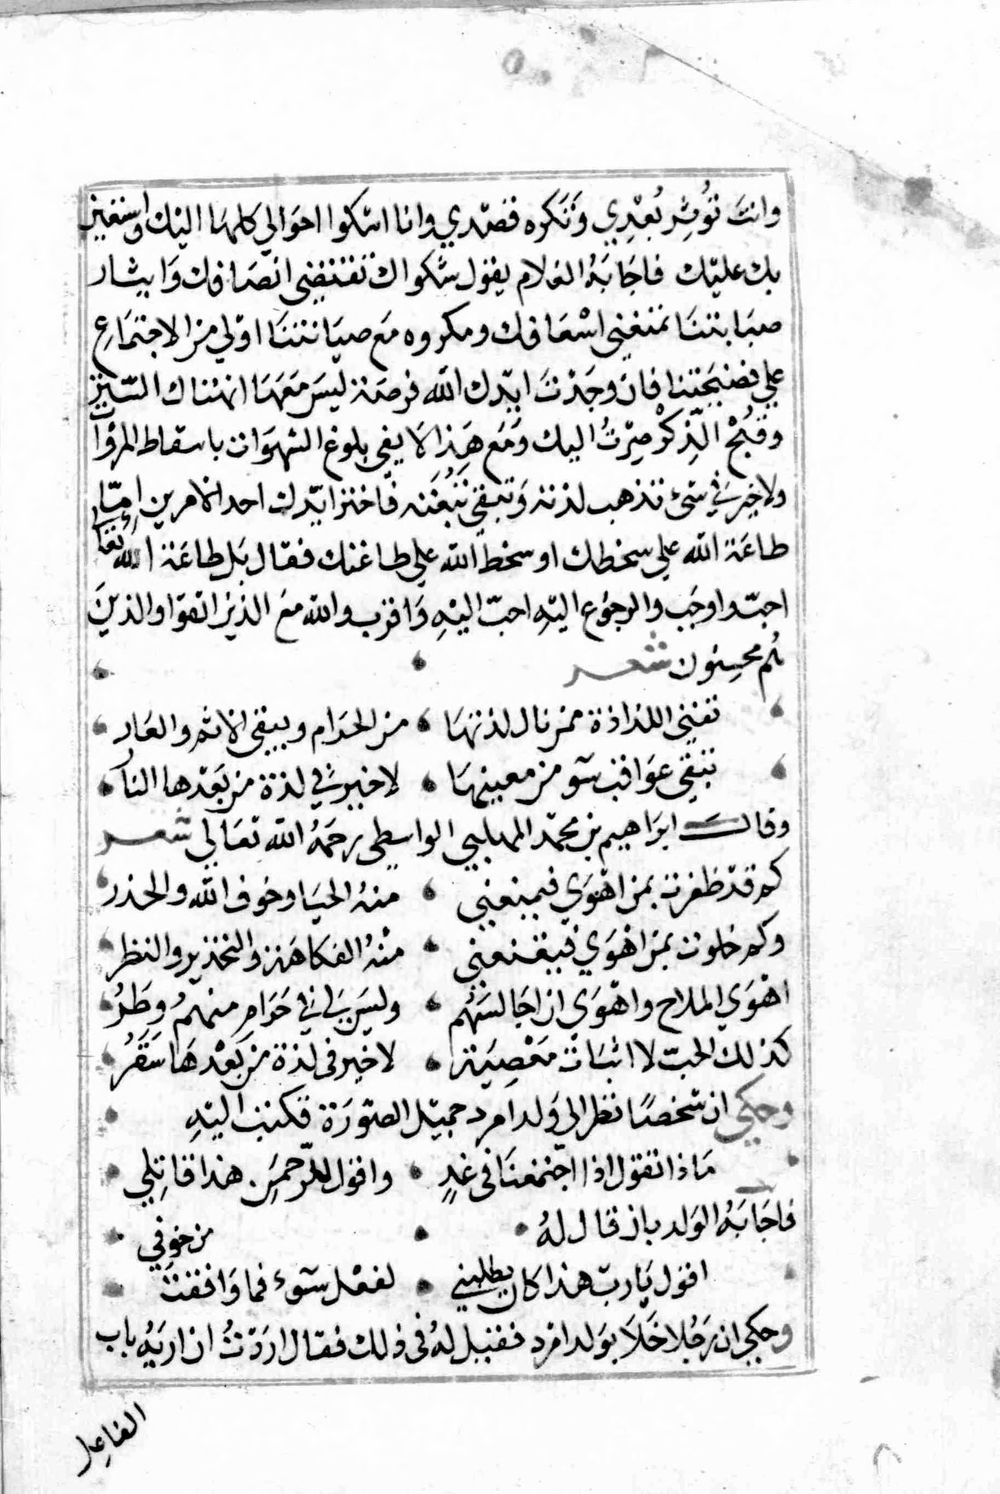 وانتَ تؤثر بُعْدِي وتكره قصدي وانا اشكوا احوالي كلها اليك واستعين
بك عليك فاجابهُ الغلام يقول شكواك تقتضى انصافك وايثار
صيانتنا تمنعنى اسْعَافك ومكروه مع صيانتنا اولي من الاجتماع
علي فضيحتنا فان وجَدْتَ ايّدك الله فرصة ليسَ مَعَهَا انهتاك السّتر
وقبُحْ الذِّكْر صِرْتُ اليك ومع هَذا لا يفي بلوغ الشهوات باسقاط المروآت
ولا خير في شىء تذهب لذته وتبقي تبعَته فاختر ايّدك احد الامرين إمّا
طاعَة الله علي سخطك او سخط الله علي طاعتك فقال بل طاعَة الله تعا
احبّ واوجَب والرجوع اليْهِ احبّ اليْهِ واقرب والله مع الذين اتقوا والذينَ
هُم محسنون شعر
تفنى اللذاذة ممن نال لذتهَا من الحَرام ويبقى الاثم والعَار
تبقي عوَاقب سَوء من مغبتهَا لا خير في لذة من بَعْدها النار
وقالَ ابرَاهيم بن محمّد المهلبي الواسطى رحمَهُ الله تعَالي شعر
كم قدْ ظفرت بمن اهْوَي فيمنعني منهُ الحيَا وخوف الله والحذر
وكم خلوت بمن اهْوَي فيقنعني منْهُ الفكاهَة والتحذير والنظر
اهْوَي الملاح واهْوَى ان اجَالسَهُم وليسَ لي في حَرَامٍ منهمُ وطرُ
كذلك الحبّ لا اتيَان مَعْصِيَة لا خير فى لذة من بَعْدهَا سَقَرُ
وحكي ان شخصًا نظر الى وَلد امرد جميْل الصّورَة فكتب اليْهِ
مَاذا تقول اذا اجْتمعنَا فى غدٍ واقول للرّحمن هذا قاتِلي
فاجَابَهُ الوَلد بان قال لهُ
اقول يَا ربّ هذا كان يطلبني لفعْل سَوء فما وَافقت من خوفي
وحكي ان رَجُلا خَلَا بوَلد امرد فقيل لهُ فى ذلك فقال ارَدْتُ ان اريَهُ باب
الفاعل